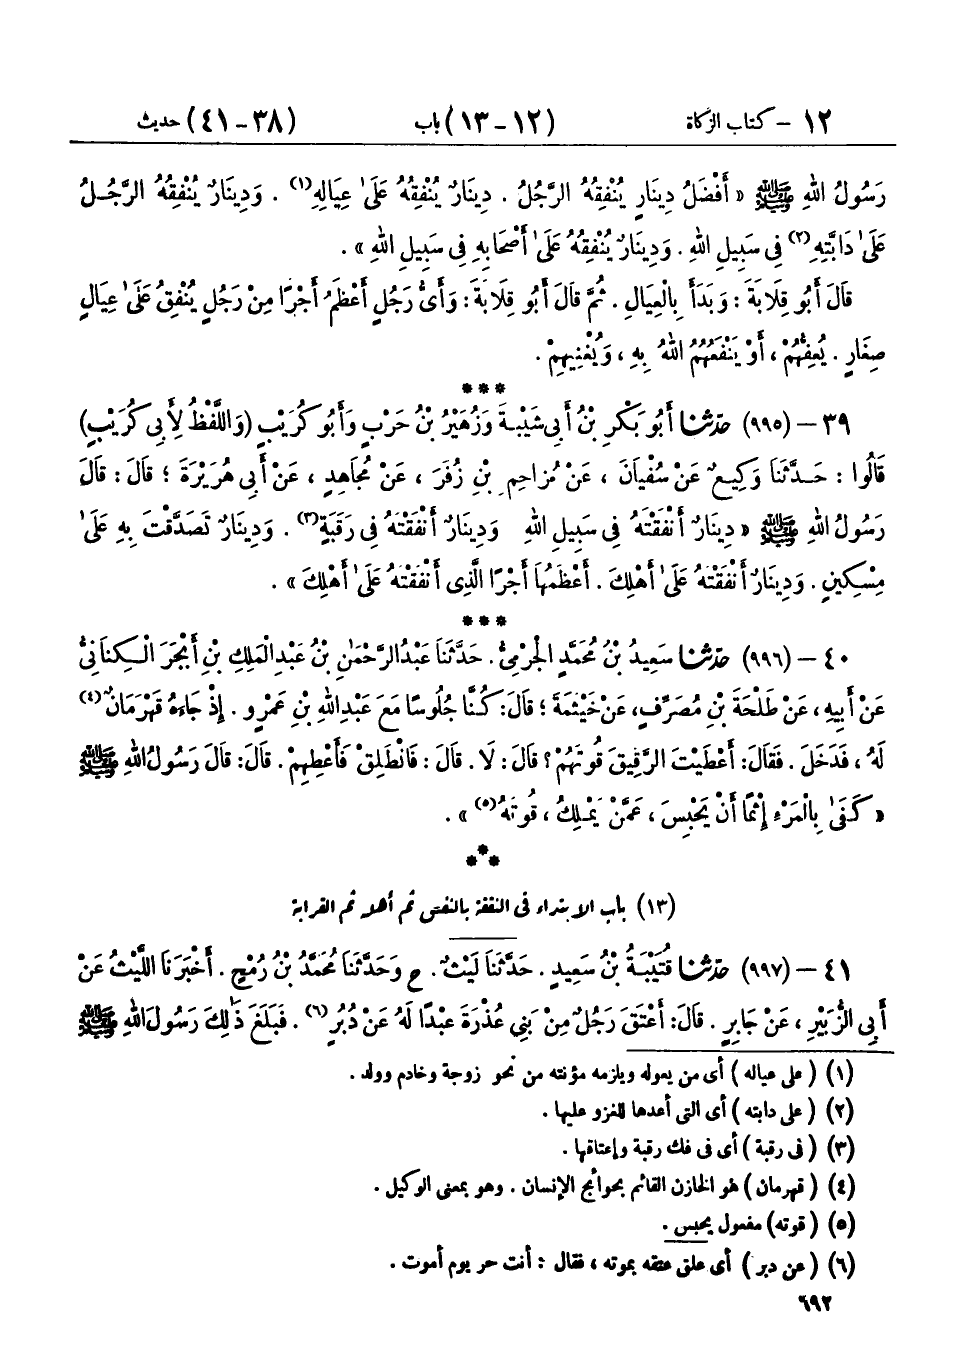 ١٢ – كتاب الزكاة (١٢ – ١٣) باب (٣٨ – ٤١) حديث
رَسُولُ اللهِ ﷺ « أَفْضَلُ دِينَارٍ يُنْفِقُهُ الرَّجُلُ . دِينَارٌ يُنْفِقُهُ عَلَىٰ عِيَالِهِ(١) . وَدِينَارٌ يُنْفِقُهُ الرَّجُلُ
عَلَىٰ دَابَّتِهِ(٢) فِى سَبِيلِ اللهِ . وَدِينَارٌ يُنْفِقُهُ عَلَىٰ أَصْحَابِهِ فِى سَبِيلِ اللهِ » .
قَالَ أَبُو قِلَابَةَ : وَبَدَأَ بِالْعِيَالِ . ثُمَّ قَالَ أَبُو قِلَابَةَ : وَأَىُّ رَجُلٍ أَعْظَمُ أَجْرًا مِنْ رَجُلٍ يُنْفِقُ عَلَىٰ عِيَالٍ
صِغَارٍ . يُعِفُّهُمْ ، أَوْ يَنْفَعُهُمُ اللهُ بِهِ ، وَيُغْنِيهِمْ .
***
٣٩ – (٩٩٥) حدثنا أَبُو بَكْرِ بْنُ أَبِى شَيْبَةَ وَزُهَيْرُ بْنُ حَرْبٍ وَأَبُو كُرَيْبٍ (وَاللَّفْظُ لِأَبِى كُرَيْبٍ)
قَالُوا : حَدَّثَنَا وَكِيعٌ عَنْ سُفْيَانَ ، عَنْ مُزَاحِمِ بْنِ زُفَرَ ، عَنْ مُجَاهِدٍ ، عَنْ أَبِى هُرَيْرَةَ ؛ قَالَ : قَالَ
رَسُولُ اللهِ ﷺ « دِينَارٌ أَنْفَقْتَهُ فِى سَبِيلِ اللهِ وَدِينَارٌ أَنْفَقْتَهُ فِى رَقَبَةٍ(٣) . وَدِينَارٌ تَصَدَّقْتَ بِهِ عَلَىٰ
مِسْكِينٍ . وَدِينَارٌ أَنْفَقْتَهُ عَلَىٰ أَهْلِكَ . أَعْظَمُهَا أَجْرًا الَّذِى أَنْفَقْتَهُ عَلَىٰ أَهْلِكَ » .
***
٤٠ – (٩٩٦) حدثنا سَعِيدُ بْنُ مُحَمَّدٍ الْجَرْمِىُّ . حَدَّثَنَا عَبْدُ الرَّحْمَٰنِ بْنُ عَبْدِ الْمَلِكِ بْنِ أَبْجَرَ الْكِنَانِىُّ
عَنْ أَبِيهِ ، عَنْ طَلْحَةَ بْنِ مُصَرِّفٍ، عَنْ خَيْثَمَةَ ؛ قَالَ: كُنَّا جُلُوسًا مَعَ عَبْدِ اللهِ بْنِ عَمْرٍو . إِذْ جَاءَهُ قَهْرَمَانٌ(٤)
لَهُ ، فَدَخَلَ . فَقَالَ: أَعْطَيْتَ الرَّقِيقَ قُوتَهُمْ ؟ قَالَ: لَا . قَالَ : فَانْطَلِقْ فَأَعْطِهِمْ . قَالَ: قَالَ رَسُولُ اللهِ ﷺ
« كَفَىٰ بِالْمَرْءِ إِثْمًا أَنْ يَحْبِسَ ، عَمَّنْ يَمْلِكُ ، قُوتَهُ(٥) » .
***
(١٣) باب الابتداء فى النفقة بالنفس ثم أهله ثم القرابة
٤١ – (٩٩٧) حدثنا قُتَيْبَةُ بْنُ سَعِيدٍ . حَدَّثَنَا لَيْثٌ . ح وَحَدَّثَنَا مُحَمَّدُ بْنُ رُمْحٍ . أَخْبَرَنَا اللَّيْثُ عَنْ
أَبِى الزُّبَيْرِ ، عَنْ جَابِرٍ . قَالَ: أَعْتَقَ رَجُلٌ مِنْ بَنِي عُذْرَةَ عَبْدًا لَهُ عَنْ دُبُرٍ(٦) . فَبَلَغَ ذَٰلِكَ رَسُولَ اللهِ ﷺ
(١) ( على عياله ) أى من يعوله ويلزمه مؤنته من نحو زوجة وخادم وولد .
(٢) ( على دابته ) أى التى أعدها للغزو عليها .
(٣) ( فى رقبة ) أى فى فك رقبة وإعتاقها .
(٤) ( قهرمان ) هو الخازن القائم بحوائج الإنسان . وهو بمعنى الوكيل .
(٥) ( قوته) مفعول يحبس .
(٦) ( عن دبر ) أى علق عتقه بموته ، فقال : أنت حر يوم أموت .
٦٩٢